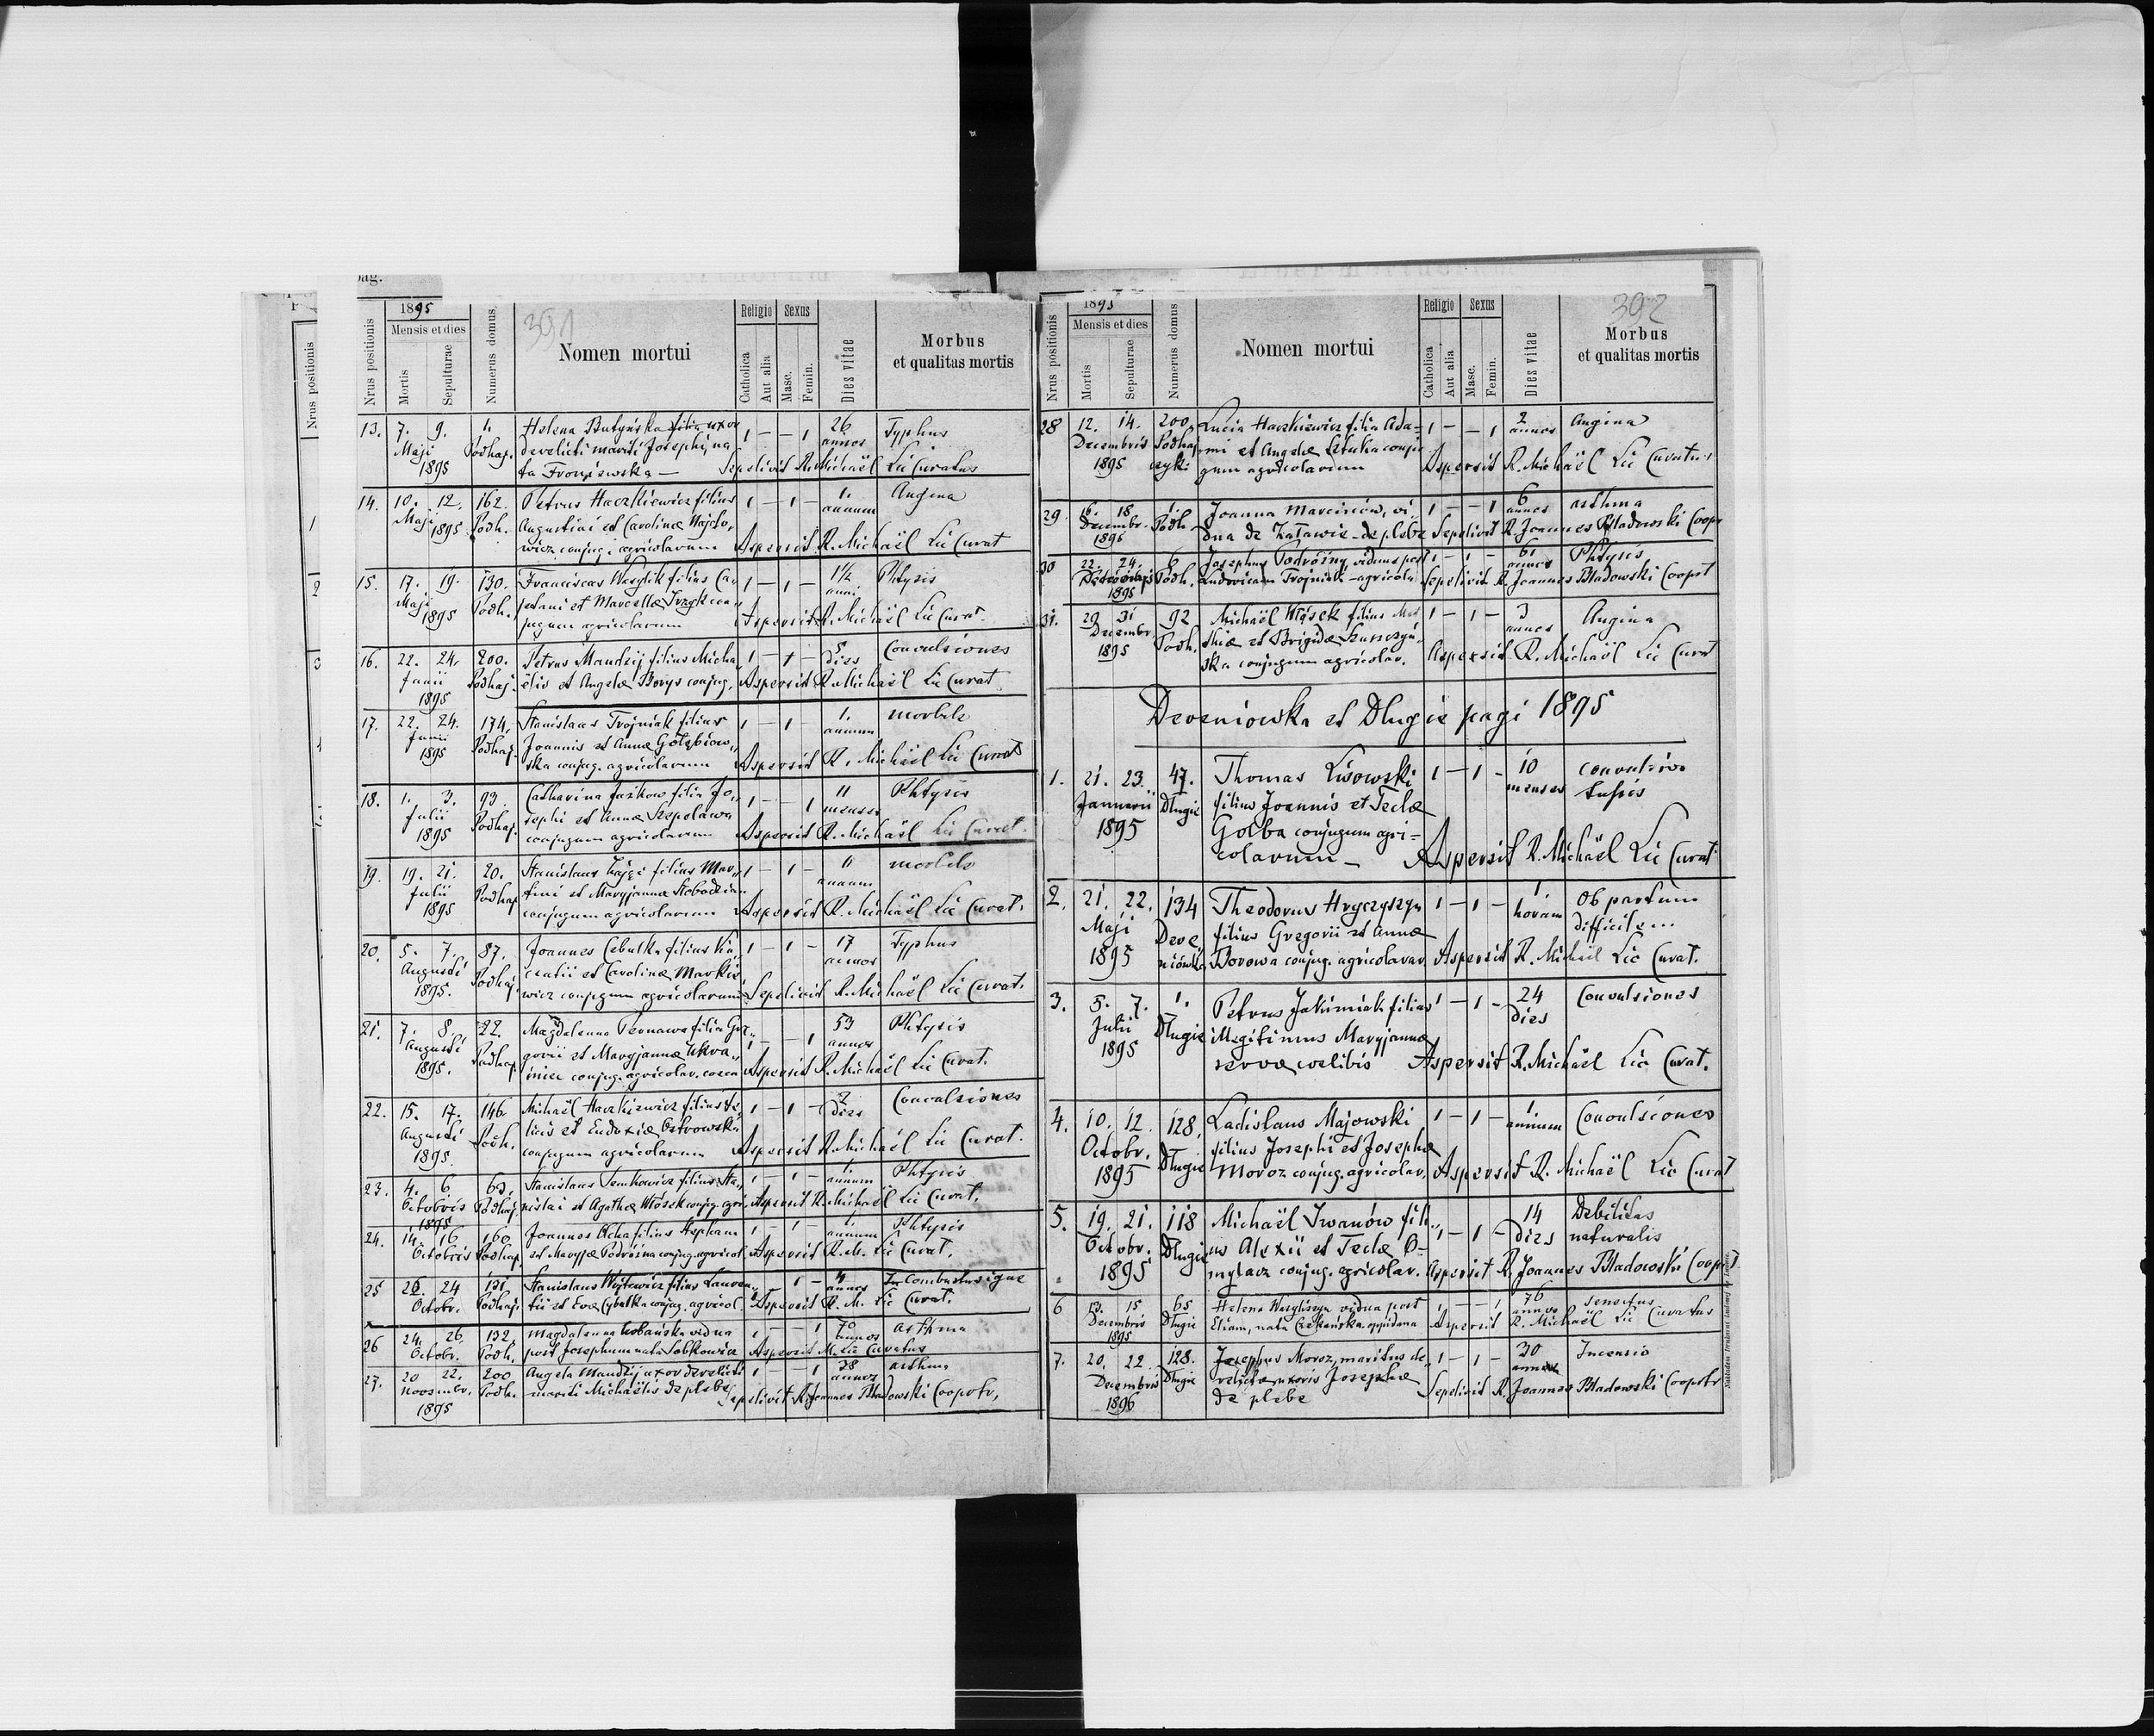 pag.
1895
391
Nrus positionis
Nrus positionis
Mensis et dies
Mortis
Sepulturae
Numerus domus
Nomen mortui
Religio
Sexus
Catholica
Aut alia
Masc.
Femin.
Dies vitae
Morbus
et qualitas mortis
13. 7. 9. 1. Helena Butyńska filia uxor 1 — — 1 26 Typhus
Maji Podhaj. derelicti mariti Josephi, na annos
1895 ta Fronyiewska — Sepelivit R. Michaël Lic Curatus
14. 10. 12. 162. Petrus Haczkiewicz filius 1 — 1 — 1. Angina
Maji Podh. Augustini et Carolinae Wajto, annum
1895 wicz conjug. agricolarum Aspersit R. Michaël Lic Curat
15. 17. 19. 130. Franciscus Wasylik filius Ca, 1 — 1 — 1½ Phtysis
Maji Podh. jetani et Marcellae con, anni
1895 jugum agricolarum Aspersit R. Michaël Lic Curat.
16. 22. 24. 200. Petrus Mandzij filius Micha, 1 — 1 — 5 Convulsiones
Junii Podhaj. ëlis et Angelae Borys conjug. Aspersit R. Michaël Lic Curat
1895 dies
17. 22. 24. 174. Stanislaus Trojniak filius 1 — 1 — 1. morbile
Junii Podhaj. Joannis et Annae Gołębiow, annum
1895 ska conjug. agricolarum Aspersit R. Michaël Lic Curat
18. 1. 3. 93. Catharina Jaźkow filia Jo, 1 — — 1 11 Phtysis
Julii Podhaj. sephi et Annae Szepelawa menses
1895 conjugum agricolarum Aspersit R. Michaël Lic Curat.
19. 19. 21. 20. Stanislaus Zając filius Mar, 1 — 1 — 11 morbile
Julii Podhaj tini et Maryjannae Słobodzian annum
1895 conjugum agricolarum Aspersit R. Michaël Lic Curat.
20. 5. 7. 87. Joannes Cebulka filius 1 — 1 — 17 Typhus
Augusti Podhaj. et Carolinae Markie, annos
1895. wicz conjugum agricolarum Sepelivit R. Michaël Lic Curat.
21. 7. 8. 22. Magdalenna Pernawa filia Gre, 1 — — 1 53 Phtysis
Augusti Podhaj. gorii et Maryjannae Ukra, annos
1895. iniec conjug. agricolar. Aspersit R. Michaël Lic Curat.
22. 15. 17. 146 Michaël Haczkiewicz filius Fe, 1 — 1 — 2 Convulsiones
Augusti Podh. licis et Eudoxiae Ostrowska dies
1895. conjugum agricolarum Aspersit R. Michaël Lic Curat.
23. 4. 6. 65. Stanislaus Senkowicz filius Sta, 1 — 1 — 1. annum Phtysis
Octobris Podhaj. nislai et Agathae Włosek conjug. agri, Aspersit R. Michaël Lic Curat.
1895
24. 14. 16 160 Joannes Ochafilius Stephani 1 — 1 — 1. annum Phtysis
Octobris Podhaj. et Maryjae Podróżna conjug. agricol. Aspersit R. M. Lic Curat.
25 22. 24 131 Stanislaus Wojtowicz filius Lauren, 1 — 4 annos Combustus igne
Octobr. Podhaj. tii et Evae Cybulka conjug. agricol. Aspersit R. M. Lic Curat.
26 24. 26. 132. Magdalenna Urbańska vidua 1 — — 1 70 annos asthma
Octobr. Podh. post Josephum nata Sobkowicz Aspersit M. Lic Curatus
27. 20 22. 200 Angela Mandzij uxor derelicti 1 — — 1 38 annos asthma
Novembr. Podh. mariti Michaëlis de plebe, Sepelivit R. Joannes Bładowski Cooprtr,
1895
1895
392
Nrus positionis
Mensis et dies
Mortis
Sepulturae
Numerus domus
Nomen mortui
Religio
Sexus
Catholica
Aut alia
Masc.
Femin.
Dies vitae
Morbus
et qualitas mortis
28 12. 14. 200. Lucia Haczkiewicz filia Ada= 1 — — 1 2 Angina
Decembris Podhaj mi et Angelae Sztuka conju annos
1895 czyk: gum agricolarum Aspersit R. Michaël Lic Curatus
29. 16. 18 1. Joanna Marciniów, vi, 1 — — 1 6 annos asthma
Decembr. Podh. dua de Załawie de plebe Sepelivit R. Joannes Bładowski Coopr
1895
30 22. 24. 6 Josephus Podróżny, viduus post 1 — 1 — 61 annos Phtysis
Podh. Ludovicam Trojniak agricola Sepelivit R. Joannes Bładowski Cooprt
1895
31. 29 31 92 Michaël Włosek filius Mat 1 — 1 — 3 Angina
Decembr. Podh. thiae et Brigidae Szumczyń, annos
1895 ska conjugum agricolar. Aspersit R. Michaël Lic Curat
Dereniowka et Dlugie pagi 1895
1. 21. 23. 47. Thomas Lisowski 1 — 1 — 10 convulsiva
Januarii Dlugie filius Joannis et Teclae menses tussis
1895 Gołba conjugum agri=
colarum — Aspersit R. Michaël Lic Curat
2. 21. 22. 134 Theodorus Hryczyszyn 1 — 1 — 1. Ob partum
Maji Dere filius Gregorii et Annae horam difficile...
1895 niówka Borowa conjug. agricolarar. Aspersit R. Michaël Lic Curat.
3. 5. 7. 1. Petrus Jakimiak filius 1 — 1 — 24 Convulsiones
Julii Długie illegitimus Maryjannae dies
1895 servae coelibis Aspersit R. Michaël Lic Curat.
4. 10. 12. 128. Ladislaus Majowski 1 — 1 — 1. Convulsiones
Octobr. Długie filius Josephi et Josephae annum
1895 Moroz conjug. agricolar. Aspersit R. Michaël Lic Curat
5. 19. 21. 118 Michaël Iwanów fili, 1 — 1 — 14 Debilitas
Octobr. Długie us Alexii et Teclae O= dies naturalis
1895 mylacz conjug. agricolar. Aspersit R. Joannes Bładowski Cooprt
6 13. 15 65 Helena Wasyliszyn vidua post 1 — — 1 76 annos senectus
Decembris Dlugie Eliam, nata Czekańska oppidana Aspersit R. Michaël Lic Curatus
1895
7. 20. 22. 128. Josephus Moroz, maritus de, 1 — 1 — 30 Incensio
Decembris Dlugie relictae uxoris Josephae annos
1896 de plebe Sepelivit R. Joannes Bładowski Cooprtr